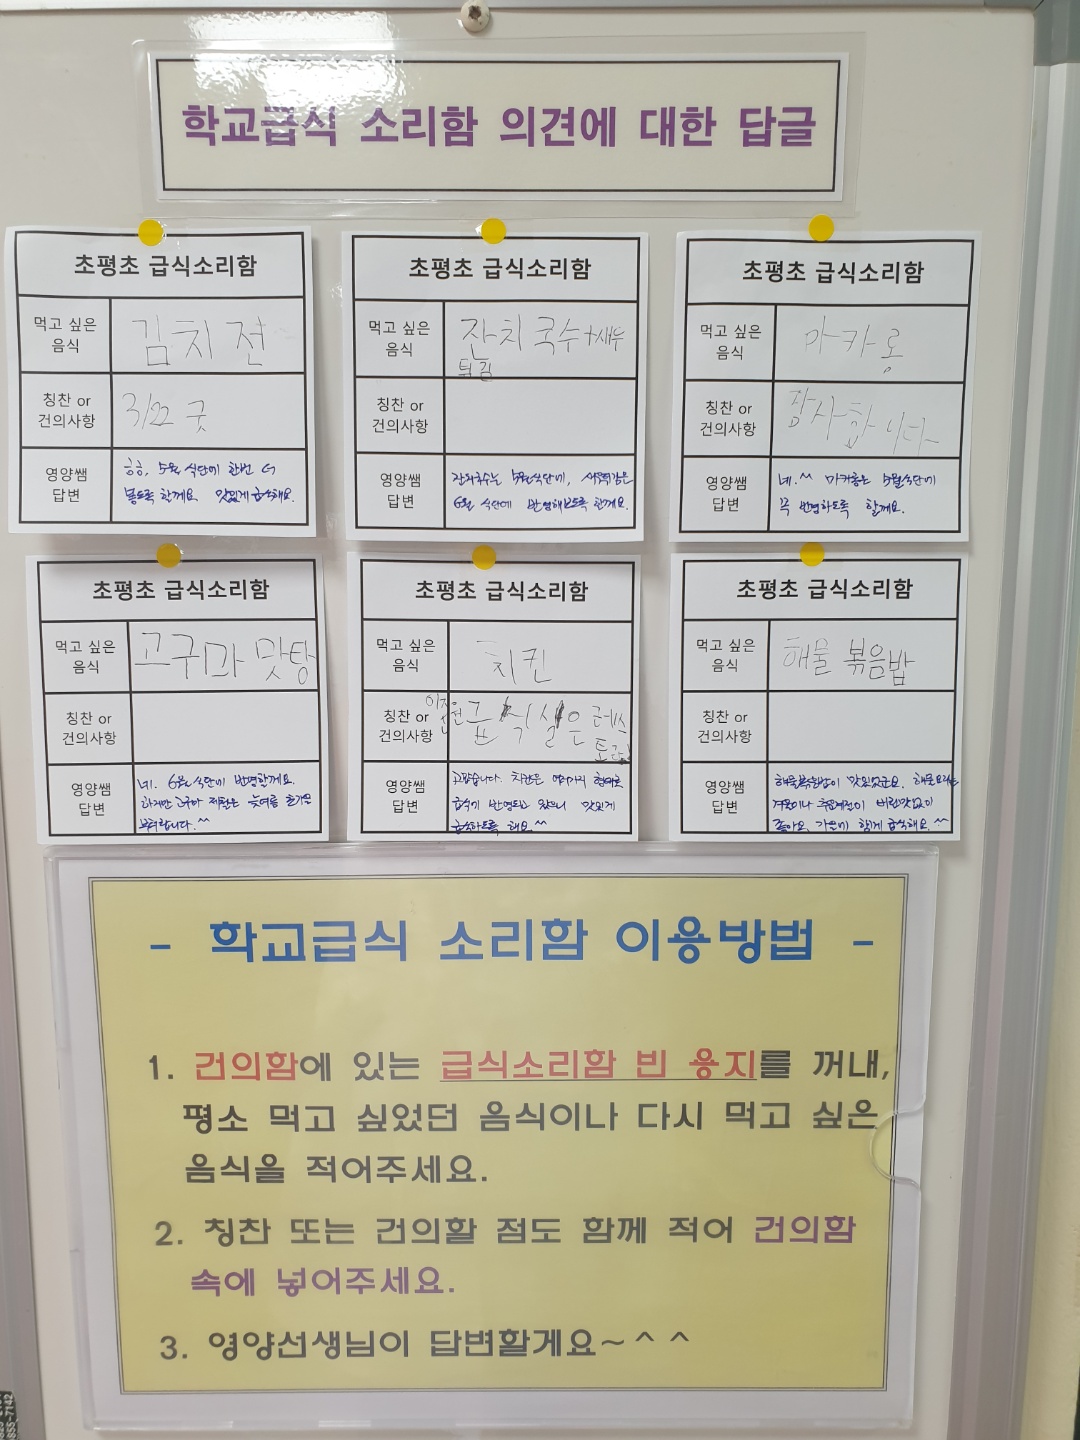 학교급식 소리함 의견에 대한 답글
초평초 급식소리함
먹고 싶은
음식
김치전
칭찬 or
건의사항
3/22 굿
영양쌤
답변
5월 식단에 한번 더
할께요. 맛있게 급식해요.
초평초 급식소리함
먹고 싶은
음식
잔치국수+새우
튀김
칭찬 or
건의사항
영양쌤
답변
잔치국수는 5월식단에, 새우튀김은
6월 식단에 반영해보도록 할께요.
초평초 급식소리함
먹고 싶은
음식
마카롱
칭찬 or
건의사항
감사합니다
영양쌤
답변
네.^^ 마카롱은 5월식단에
꼭 반영하도록 할께요.
초평초 급식소리함
먹고 싶은
음식
고구마 맛탕
칭찬 or
건의사항
영양쌤
답변
네. 6월 식단에 반영할께요.
하지만 고구마 제철은 늦여름
^^
초평초 급식소리함
먹고 싶은
음식
치킨
칭찬 or
건의사항
급식실은 레스
토랑!
영양쌤
답변
고맙습니다. 치킨은 여러가지 형태로
급식에 반영되고 있으니 맛있게
급식하도록 해요.^^
초평초 급식소리함
먹고 싶은
음식
해물 볶음밥
칭찬 or
건의사항
영양쌤
답변
해물볶음밥이 맛있었군요. 해물요리는
겨울이나
좋아요. 가을에 함께 급식해요.^^
- 학교급식 소리함 이용방법 -
1. 건의함에 있는 급식소리함 빈 용지를 꺼내,
평소 먹고 싶었던 음식이나 다시 먹고 싶은
음식을 적어주세요.
2. 칭찬 또는 건의할 점도 함께 적어 건의함
속에 넣어주세요.
3. 영양선생님이 답변할게요~^^